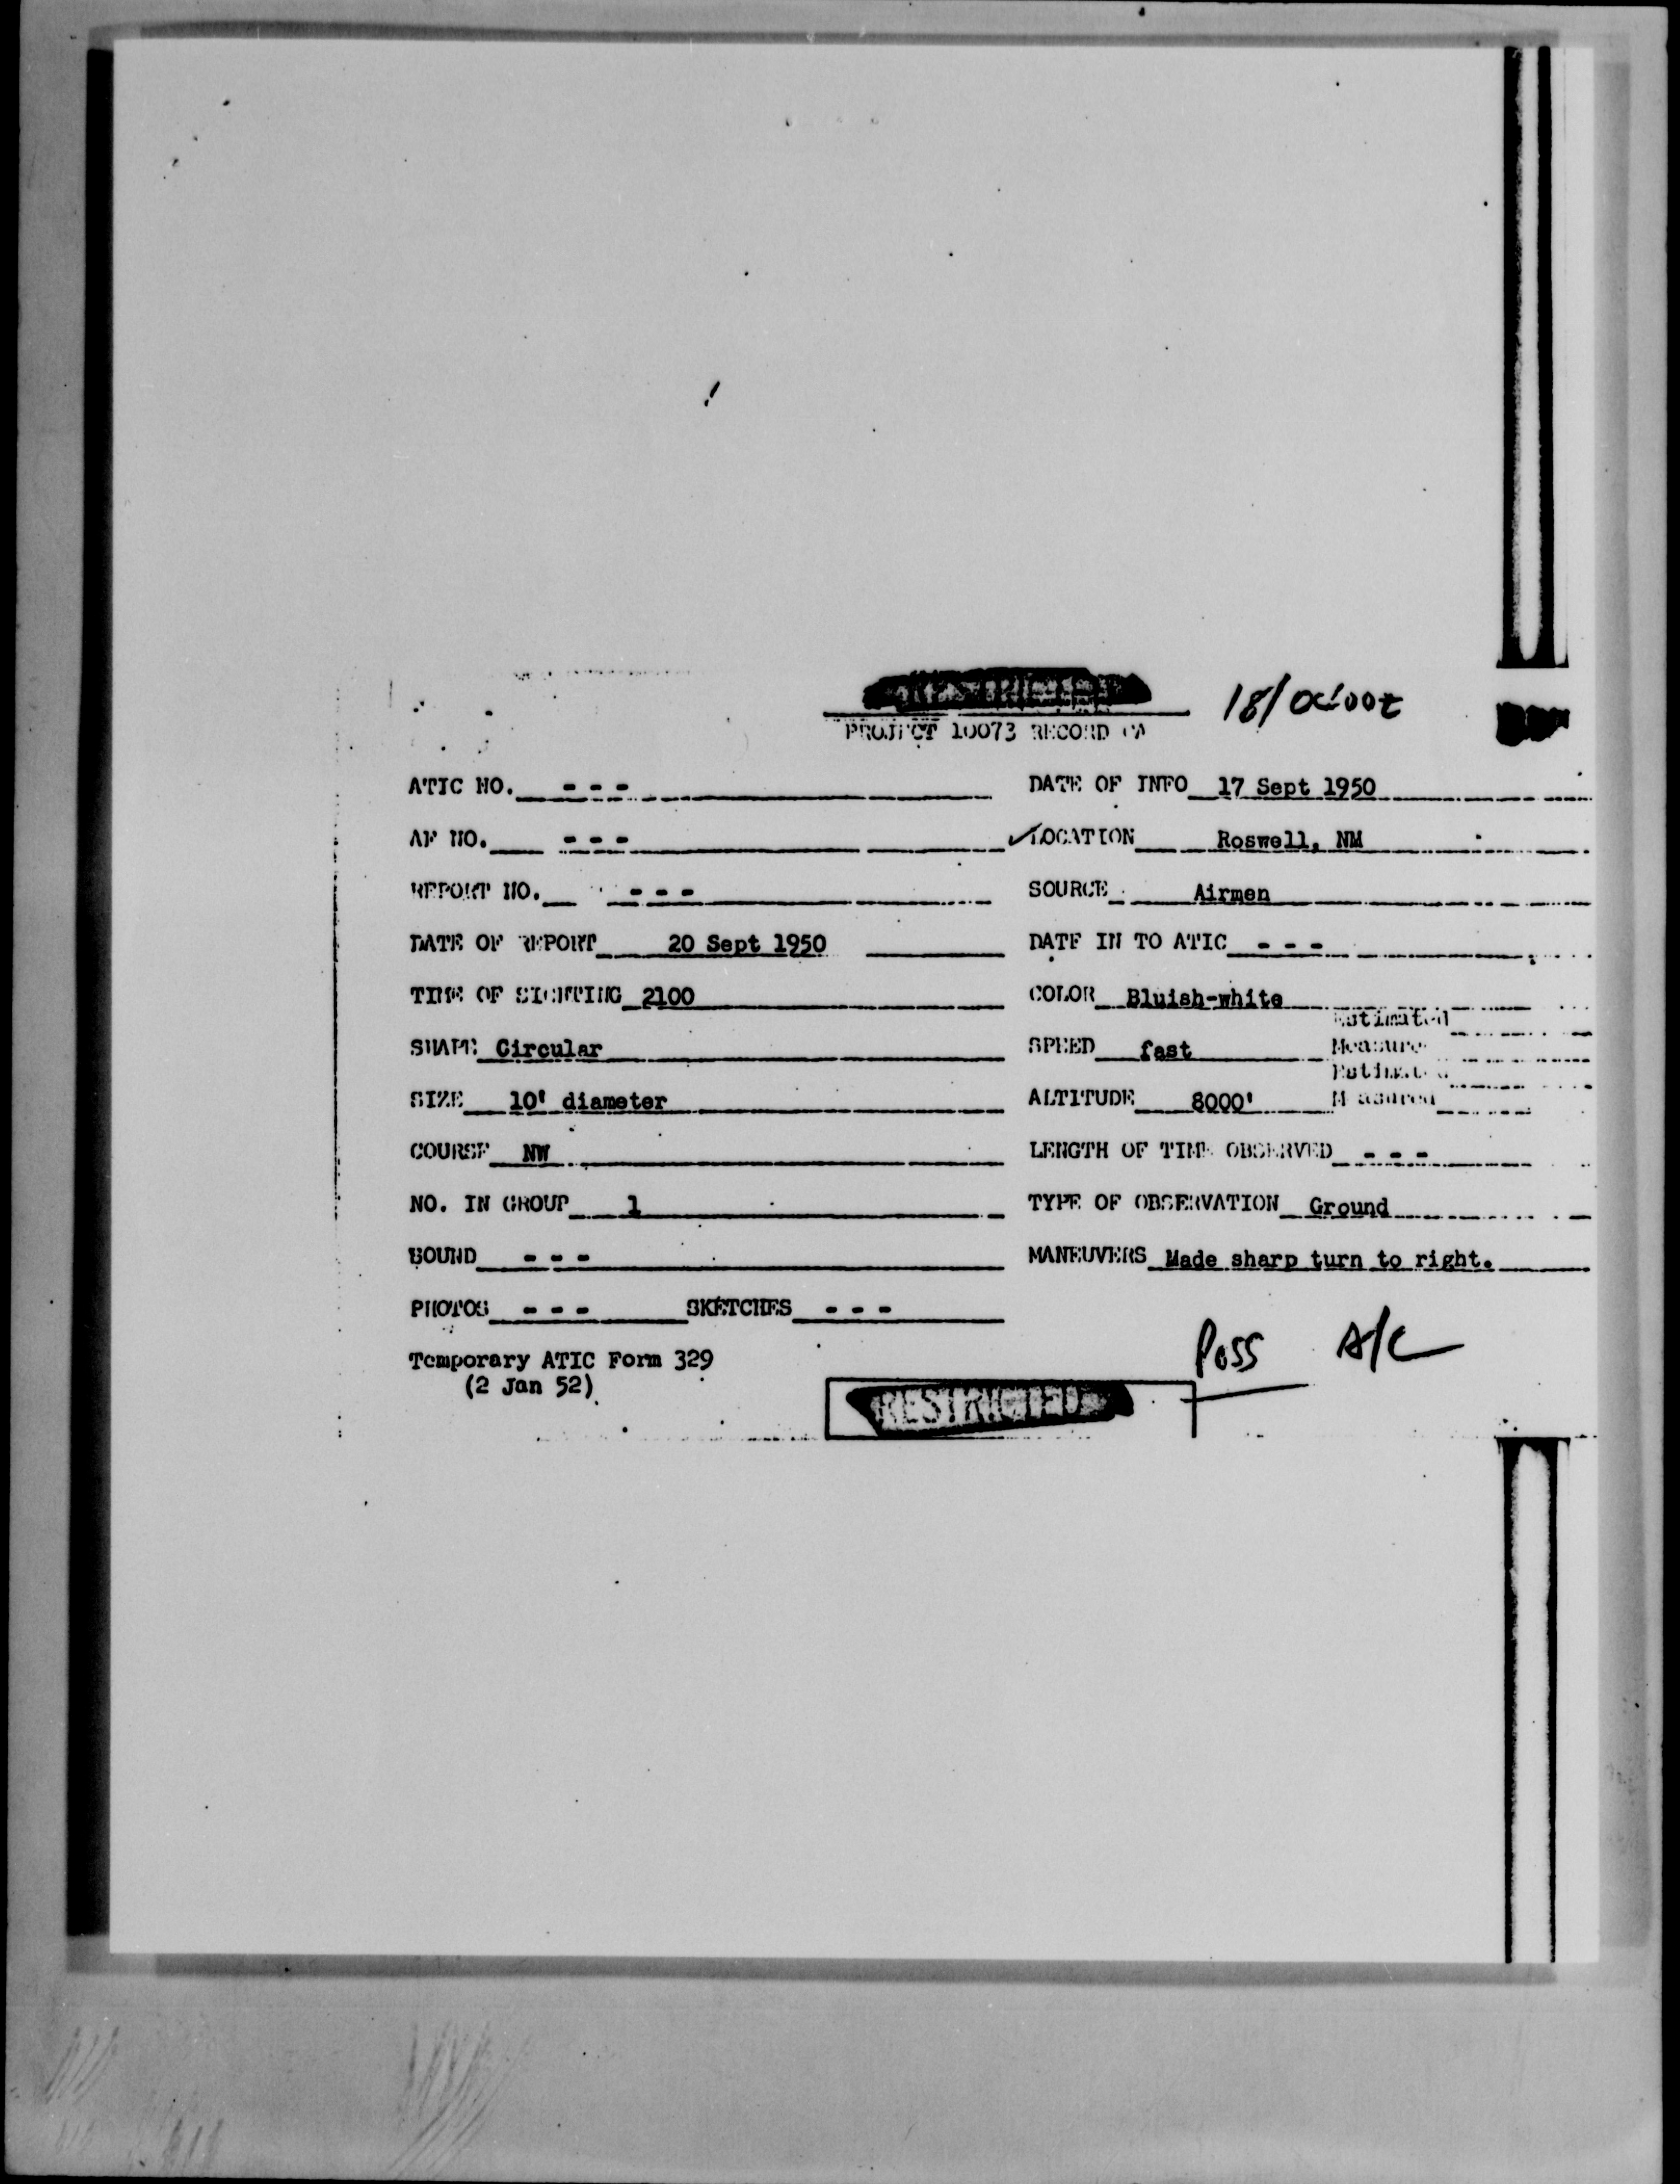 18/0400Z
PROJECT 10073 RECORD CA
ATIC NO. - - - DATE OF INFO 17 Sept 1950
AF NO. - - - ✓LOCATION Roswell, NM
REPORT NO. - - - SOURCE Airmen
DATE OF REPORT 20 Sept 1950 DATE IN TO ATIC - - -
TIME OF SIGHTING 2100 COLOR Bluish-white
Estimated
SHAPE Circular SPEED fast Measure
Estimated
SIZE 10' diameter ALTITUDE 8000' Measured
COURSE NW LENGTH OF TIME OBSERVED - - -
NO. IN GROUP 1 TYPE OF OBSERVATION Ground
SOUND - - - MANEUVERS Made sharp turn to right.
PHOTOS - - - SKETCHES - - -
Poss A/C
Temporary ATIC Form 329
(2 Jan 52)
RESTRICTED